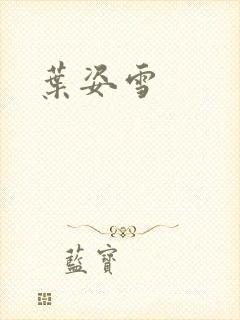 葉姿雪
藍寶